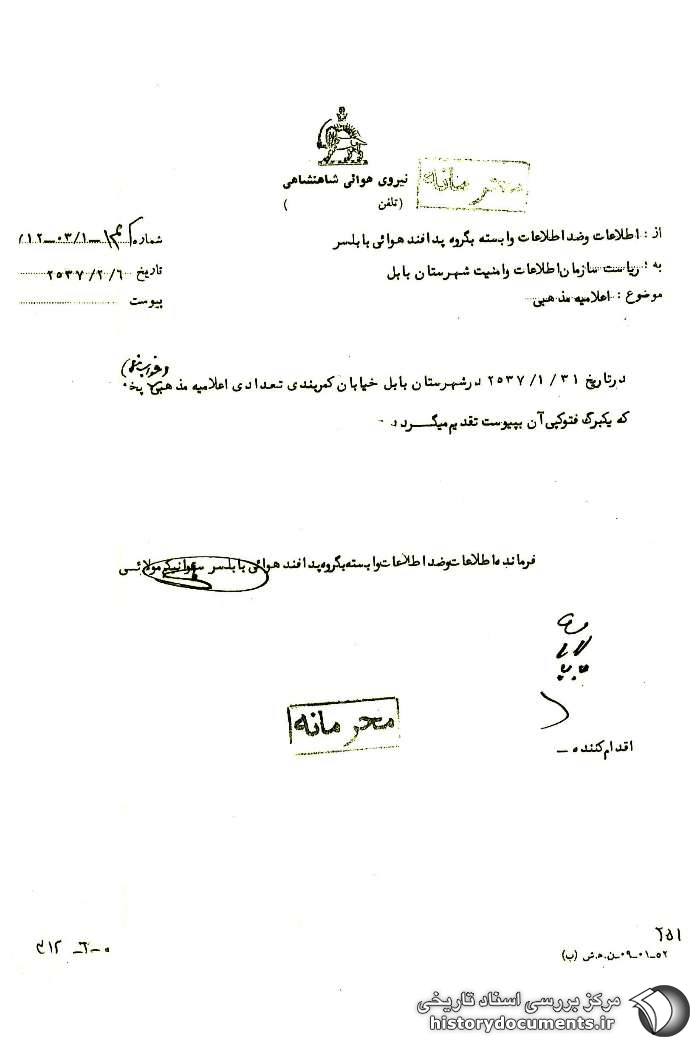 نیروی هوائی شاهنشاهی
(تلفن )
محرمانه
از : اطلاعات وضد اطلاعات وابسته بگروه پدافند هوائی بابلسر
شماره ۱۲-۰۳/۱-
به : ریاست سازمان اطلاعات وامنیت شهرستان بابل
تاریخ ۲۵۳۷/۲/۶
موضوع : اعلامیه مذهبی
پیوست
درتاریخ ۲۵۳۷/۱/۳۱ درشهرستان بابل خیابان کمربندی تعدادی اعلامیه مذهبی پخش
که یکبرگ فتوکپی آن بپیوست تقدیم میگردد -
فرمانده اطلاعات وضد اطلاعات وابسته بگروه پدافند هوائی بابلسر مولائی
محرمانه
اقدام کننده -
۲۵۱
۵۲-۰۱-۰۹-ن.ه.ش (ب)
۳۱۲-۶-۰
مرکز بررسی اسناد تاریخی
historydocuments.ir